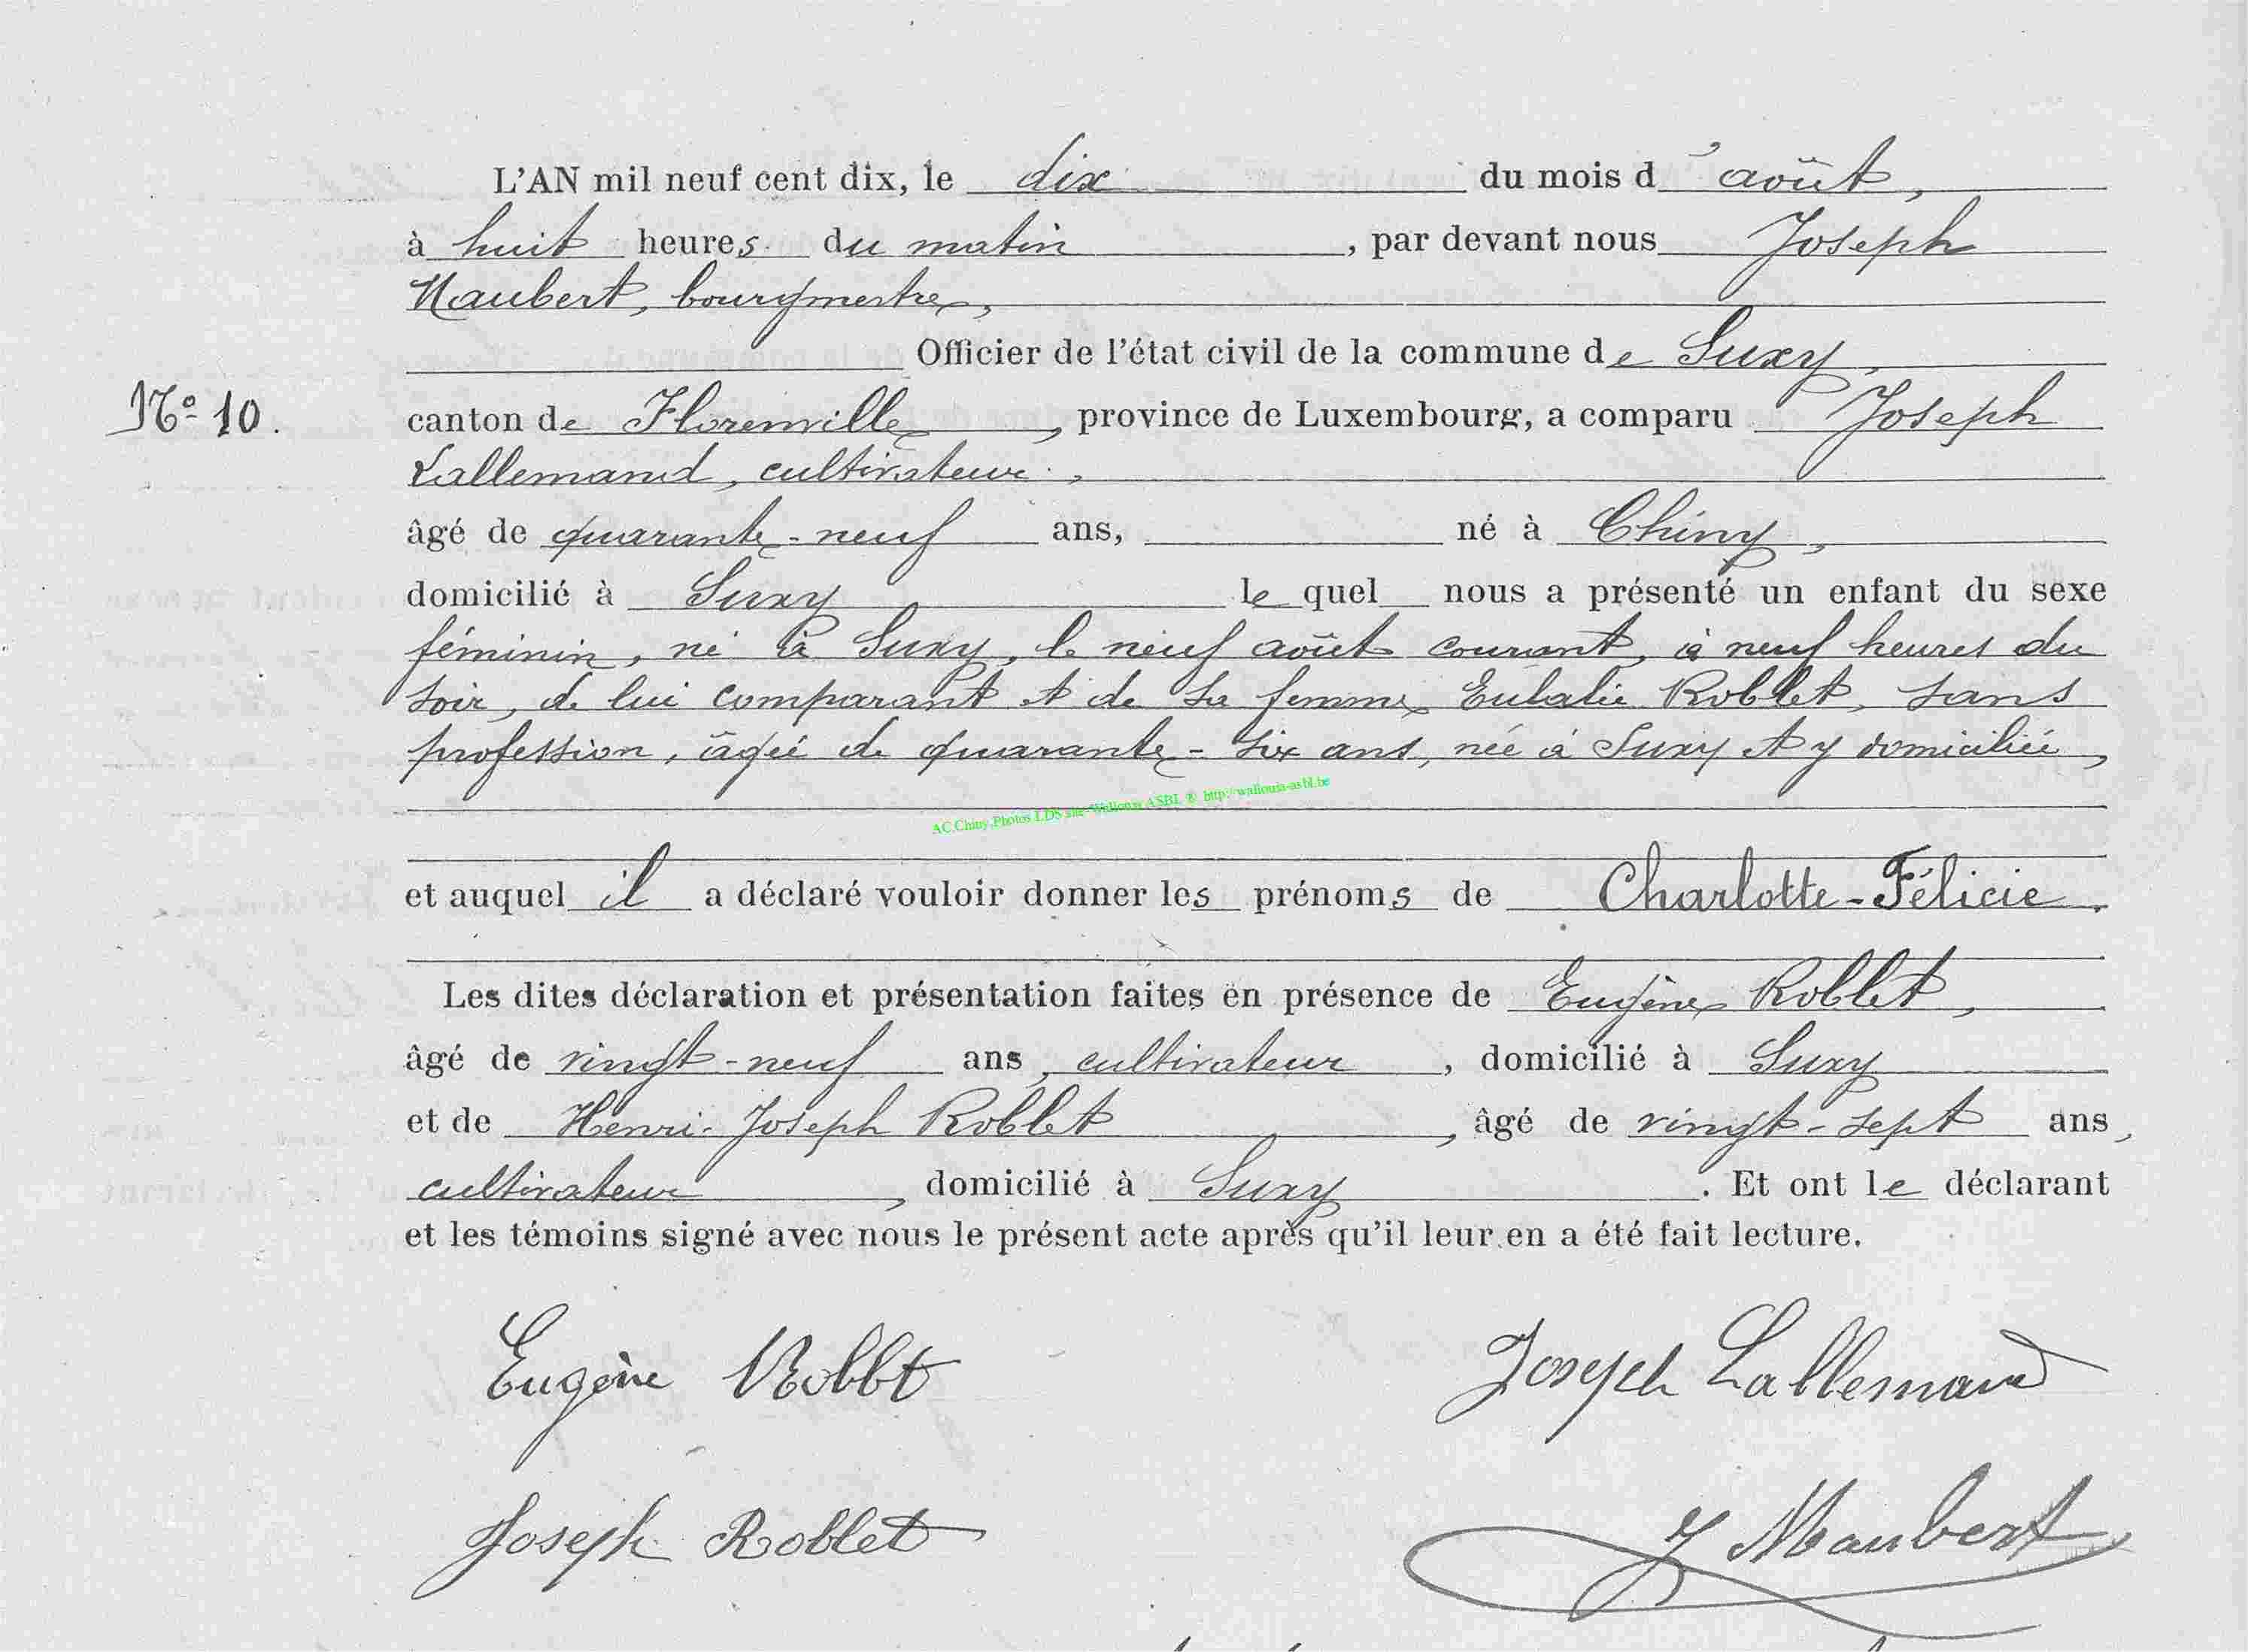 L'AN mil neuf cent dix, le dix du mois d'août,
à huit heures du matin, par devant nous Joseph
Maubert, bourgmestre,
Officier de l'état civil de la commune de Suxy,
N° 10.
canton de Florenville, province de Luxembourg, a comparu Joseph
Lallemand, cultivateur,
âgé de quarante-neuf ans, né à Chiny,
domicilié à Suxy lequel nous a présenté un enfant du sexe
féminin, né à Suxy, le neuf août courant, à neuf heures du
soir, de lui comparant et de sa femme Eulalie Roblet, sans
profession, âgée de quarante-six ans, née à Suxy et y domiciliée,
AC Chiny Photos LDS site Wallonia ASBL ® http://wallonia-asbl.be
et auquel il a déclaré vouloir donner les prénoms de Charlotte-Félicie.
Les dites déclaration et présentation faites en présence de Eugène Roblet,
âgé de vingt-neuf ans, cultivateur, domicilié à Suxy
et de Henri-Joseph Roblet, âgé de vingt-sept ans,
cultivateur, domicilié à Suxy. Et ont le déclarant
et les témoins signé avec nous le présent acte après qu'il leur en a été fait lecture.
Eugène Roblet Joseph Lallemand
Joseph Roblet J Maubert